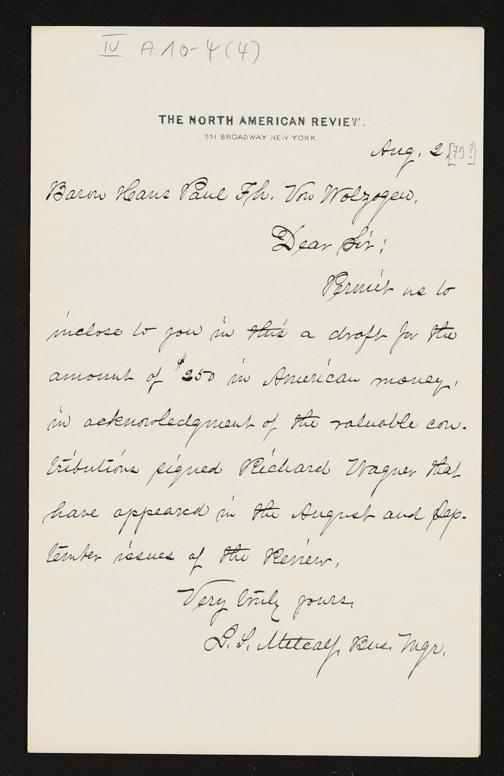 IV A 10-4 (4)
THE NORTH AMERICAN REVIEW.
551 BROADWAY NEW YORK.
Aug. 2, [79?]
Baron Hans Paul Fh. Von Wolzogen,
Dear Sir;
Permit us to
inclose to you in this a draft for the
amount of $250 in American money,
in acknowledgment of the valuable con-
tributions signed Richard Wagner that
have appeared in the August and Sep-
tember issues of the Review.
Very truly yours,
L. S. Metcalf, Bus. Mgr.